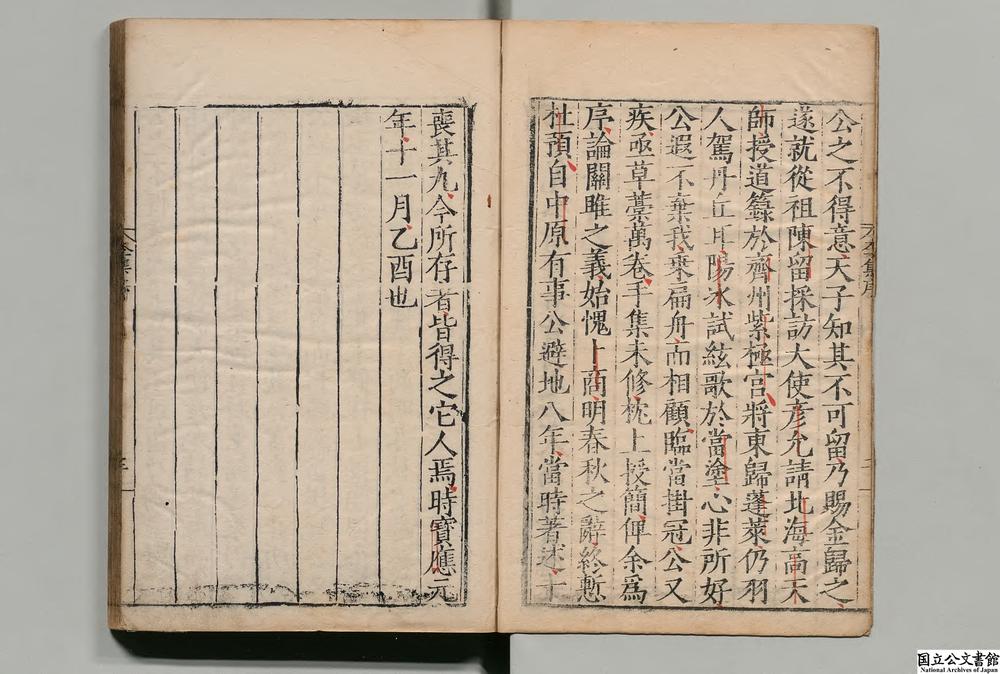 公之不得意天子知其不可留乃賜金歸之
遂就從祖陳留採訪大使彥允請北海高天
師授道籙於齊州紫極宮將東歸蓬萊仍羽
人駕丹丘耳陽冰試絃歌於當塗心非所好
公遐不棄我乗扁舟而相顧臨當掛冠公又
疾亟草藁萬卷手集未修枕上授簡俾余爲
序論關雎之義始愧卜商明春秋之辭終慙
杜預自中原有事公避地八年當時著述十
喪其九今所存者皆得之它人焉時寶應元
年十一月乙酉也
国立公文書館
National Archives of Japan